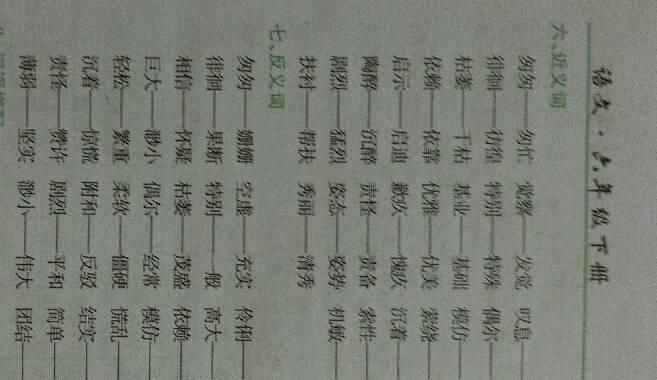 语文·六年级下册
六、近义词
匆匆——匆忙 觉察——发觉 叹息——
徘徊——彷徨 特别——特殊 偶尔——
枯萎——干枯 基业——基础 模仿——
依赖——依靠 优雅——优美 萦绕——
启示——启迪 歉疚——愧疚 沉着——
陶醉——沉醉 责怪——责备 索性——
剧烈——猛烈 姿态——姿势 机敏——
扶衬——帮扶 秀丽——清秀
七、反义词
匆匆——姗姗 空虚——充实 伶俐——
徘徊——果断 特别——一般 高大——
相信——怀疑 枯萎——茂盛 依赖——
巨大——渺小 偶尔——经常 模仿——
轻松——繁重 柔软——僵硬 慌乱——
沉着——惊慌 附和——反驳 结实——
责怪——赞许 剧烈——平和 简单——
薄弱——坚实 渺小——伟大 团结——